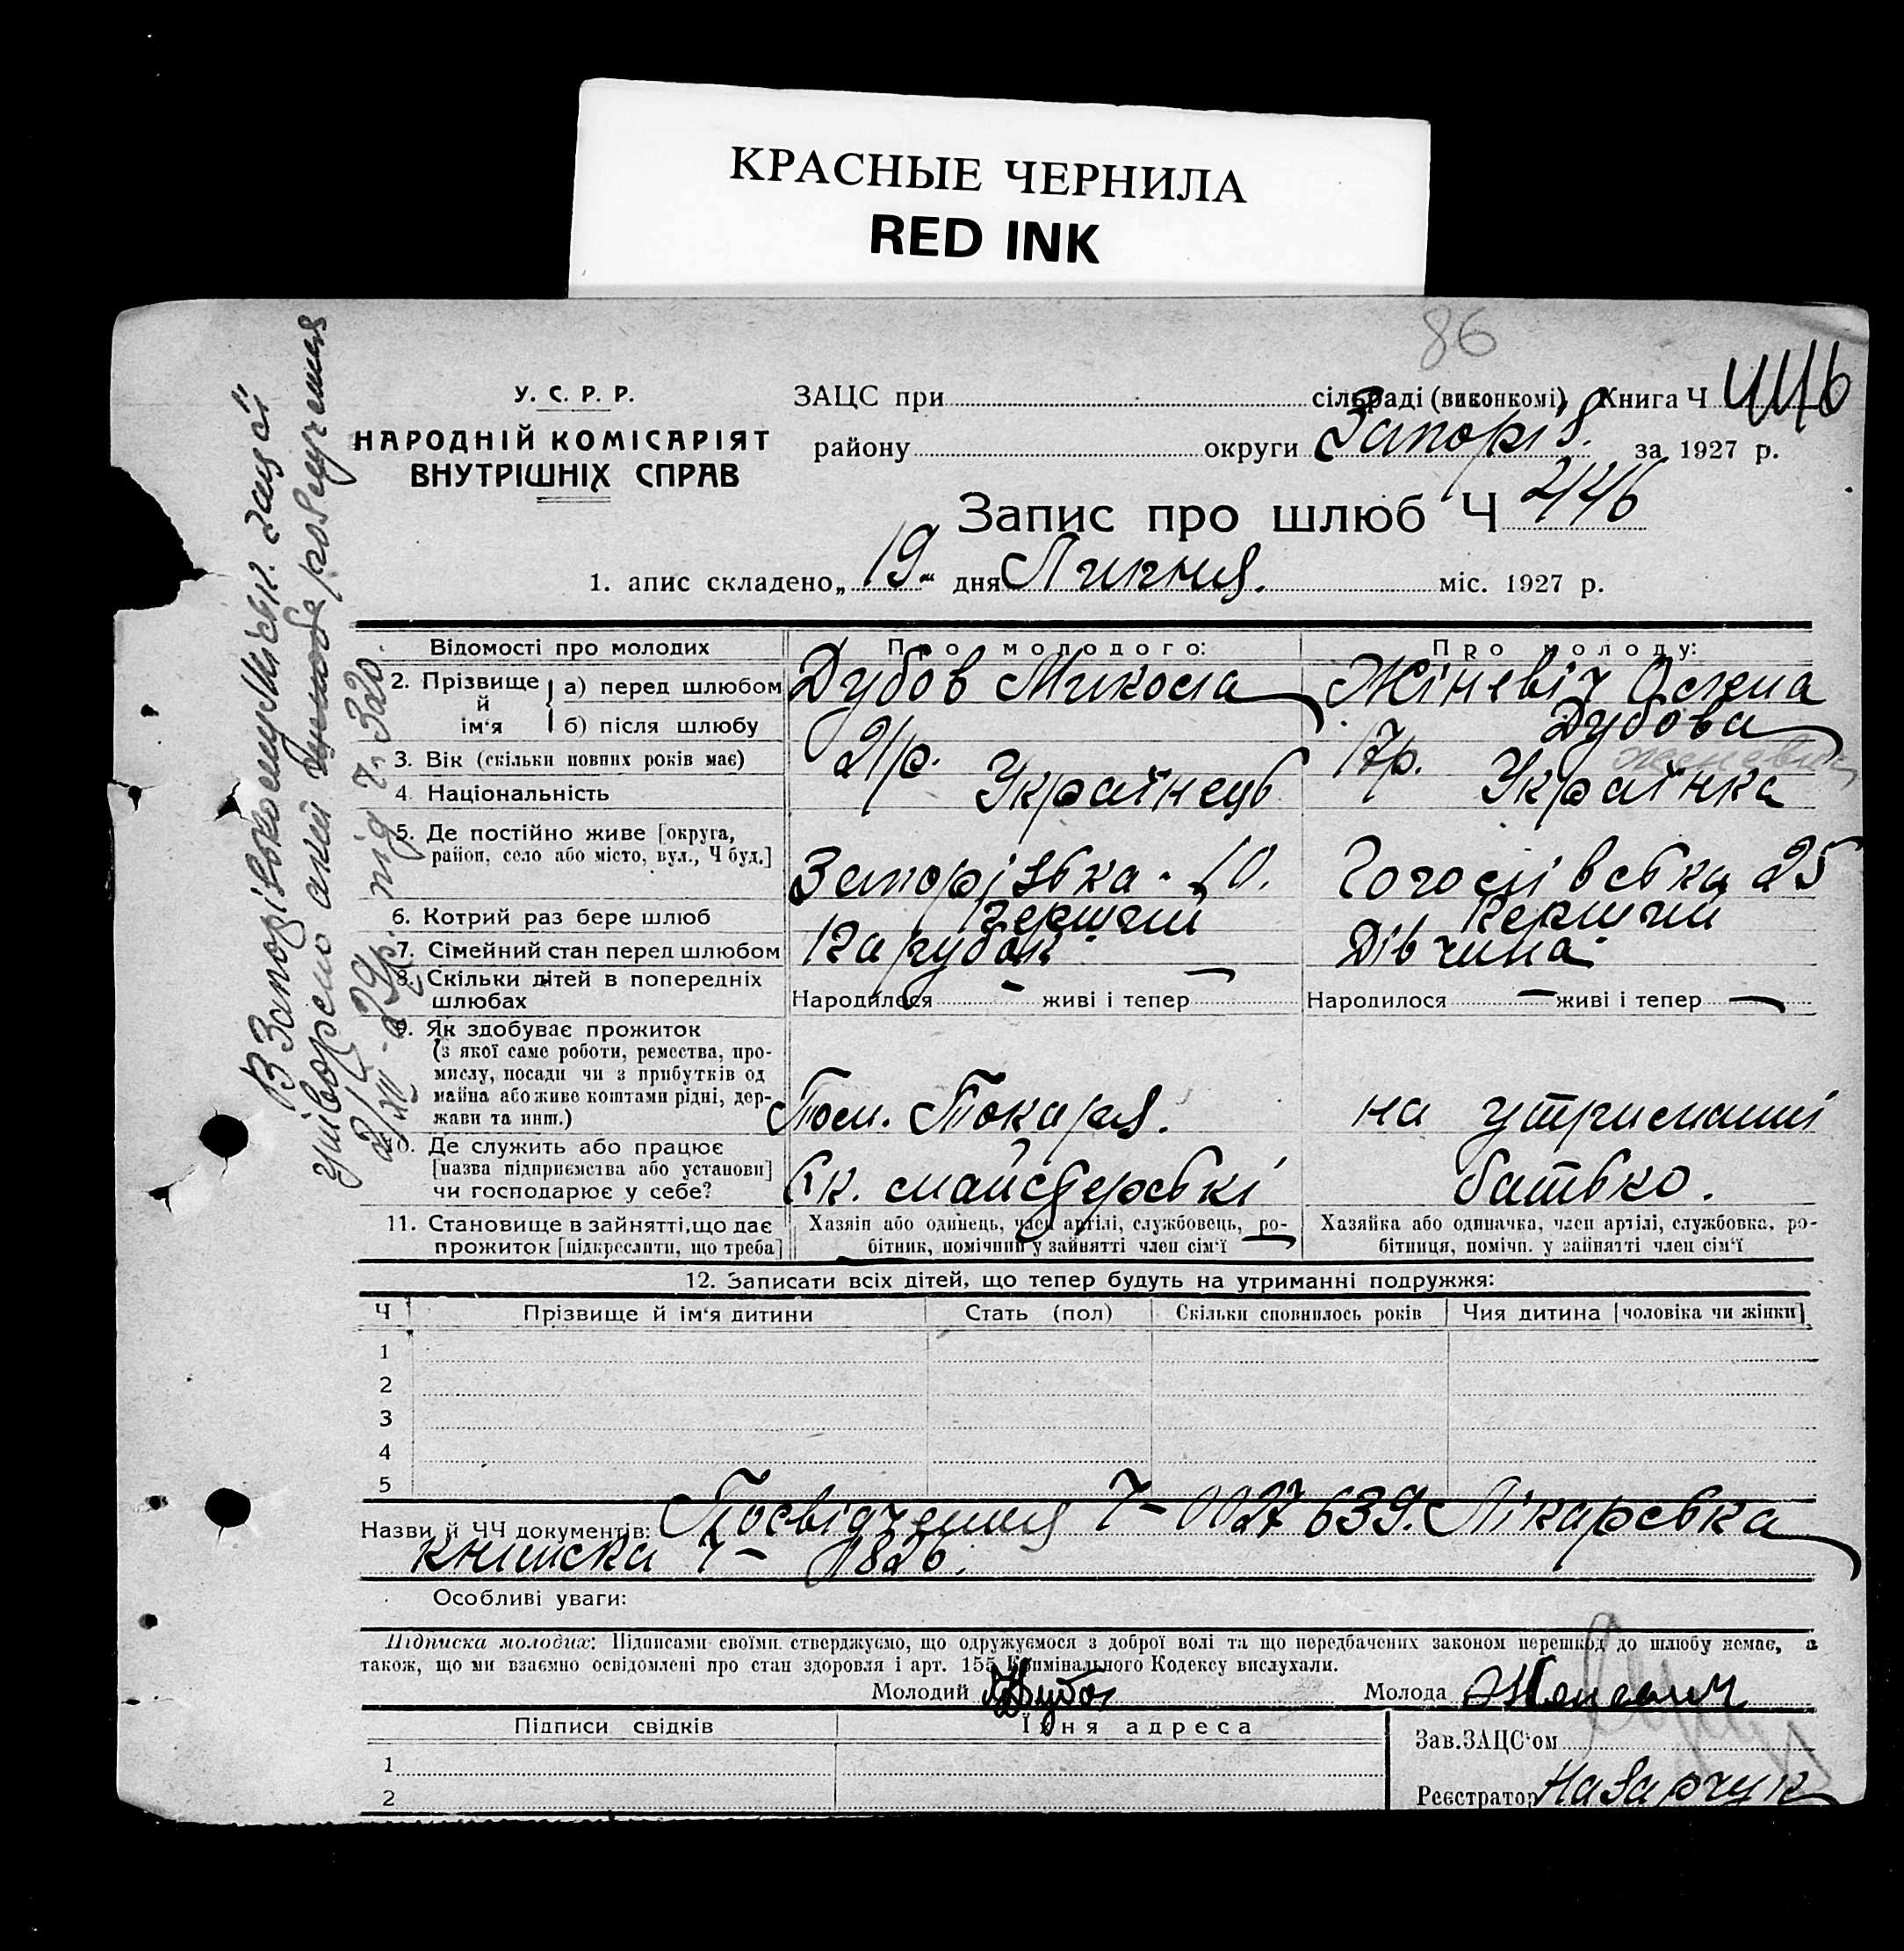 КРАСНЫЕ ЧЕРНИЛА
RED INK
86
У. С. Р. Р.
НАРОДНІЙ КОМІСАРІЯТ
ВНУТРІШНІХ СПРАВ
ЗАЦС при сільраді (виконкомі) Книга Ч
району округи Запоріз. за 1927 р.
Запис про шлюб Ч 446
1. апис складено „ 19 " дня Липня. міс. 1927 р.
В Запорізькому Міськ. Зацсі
утворено акт про розлучення
2/XII-29р. під ч. 320.
Відомості про молодих
Про молодого:
Про молоду:
2. Прізвище й ім'я
а) перед шлюбом
Дубов Микола
Жіневіч Олена
б) після шлюбу
Дубова
3. Вік (скільки повних років має)
21р.
17р.
женевич
4. Національність
Українець
Українка
5. Де постійно живе [округа,
район, село або місто, вул., Ч буд.]
Запорізька. 10.
Гоголівська 25
6. Котрий раз бере шлюб
Перший
Перший
7. Сімейний стан перед шлюбом
Парубок.
Дівчина.
8. Скільки дітей в попередніх
шлюбах
Народилося – живі і тепер –
Народилося – живі і тепер –
9. Як здобуває прожиток
(з якої саме роботи, ремества, про-
мислу, посади чи з прибутків од
майна або живе коштами рідні, дер-
жави та инш.)
Пом. Токаря.
на утриманні
10. Де служить або працює
[назва підприємства або установи]
чи господарює у себе?
майстерські
батько.
11. Становище в зайнятті, що дає
прожиток [підкреслити, що треба]
Хазяїн або одинець, член артілі, службовець, ро-
бітник, помічний у зайнятті член сім'ї
Хазяйка або одиначка, член артілі, службовка, ро-
бітниця, помічн. у зайнятті член сім'ї
12. Записати всіх дітей, що тепер будуть на утриманні подружжя:
Ч Прізвище й ім'я дитини Стать (пол) Скільки сповнилось років Чия дитина [чоловіка чи жінки]
1
2
3
4
5
Назви й ЧЧ документів: Посвідчення Ч– 0027639. Лікарська
книжка Ч– 1826.
Особливі уваги:
Підписка молодих: Підписами своїми стверджуємо, що одружуємося з доброї волі та що передбачених законом перешкод до шлюбу немає, а
також, що ми взаємно освідомлені про стан здоровля і арт. 155 Кримінального Кодексу вислухали.
Молодий Дубов
Молода Женевич
Підписи свідків
Їхня адреса
Зав. ЗАЦС'ом
1
2
Реєстратор Назарчук